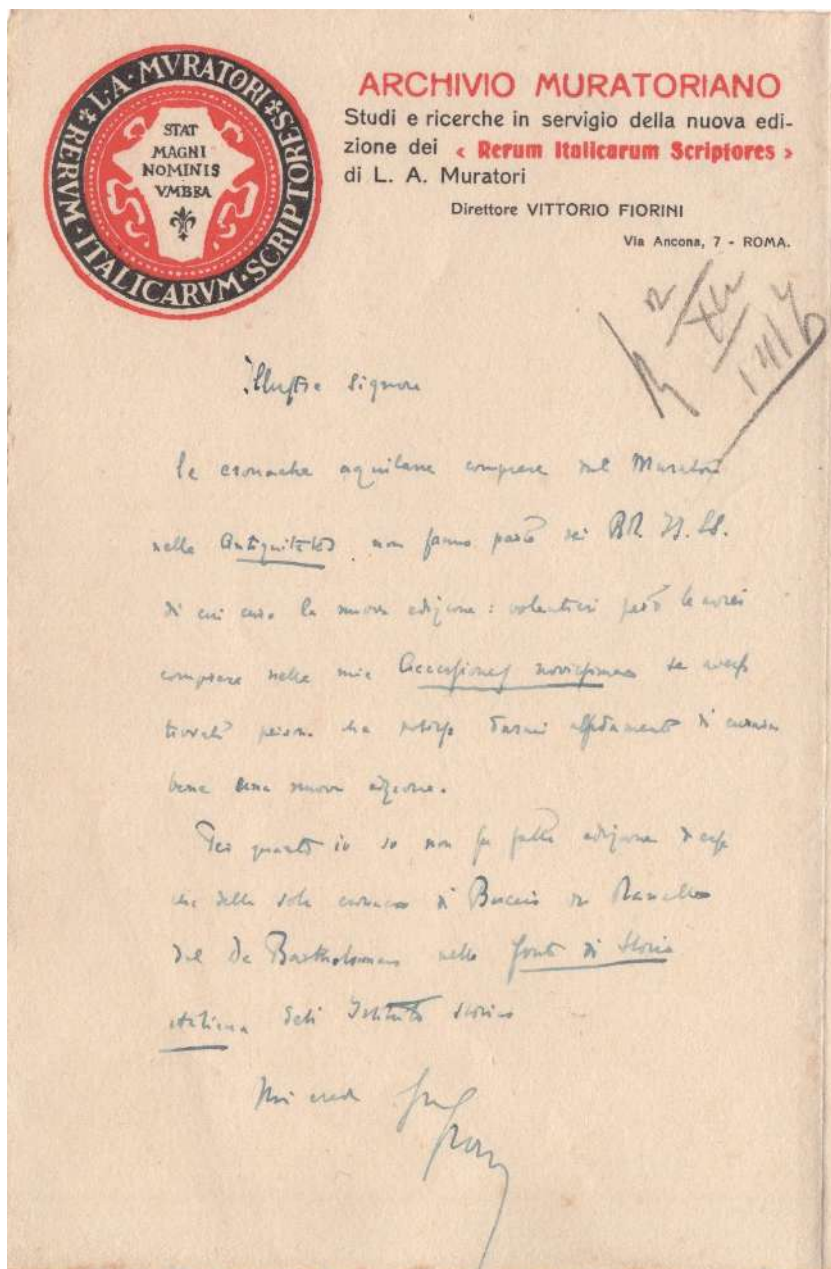 RERVM·ITALICARVM·SCRIPTORES
L·A·MVRATORI
STAT
MAGNI
NOMINIS
VMBRA
ARCHIVIO MURATORIANO
Studi e ricerche in servigio della nuova edi-
zione dei « Rerum Italicarum Scriptores »
di L. A. Muratori
Direttore VITTORIO FIORINI
Via Ancona, 7 - ROMA.
Illustre Signore
le cronache aquilane comprese dal Muratori
nelle Antiquitates non fanno parte dei RR. II. SS.
di cui curo la nuova edizione: volentieri però le avrei
comprese nelle mie Accessiones novissimae se avessi
trovato persona che potesse darmi affidamento di curarne
bene una nuova edizione.
Per quanto io so non fu fatta edizione di esse
che della sola cronaca di Buccio di Ranallo
dal De Bartholomaeis nelle Fonti di Storia
italiana dell' Istituto storico
Mi creda